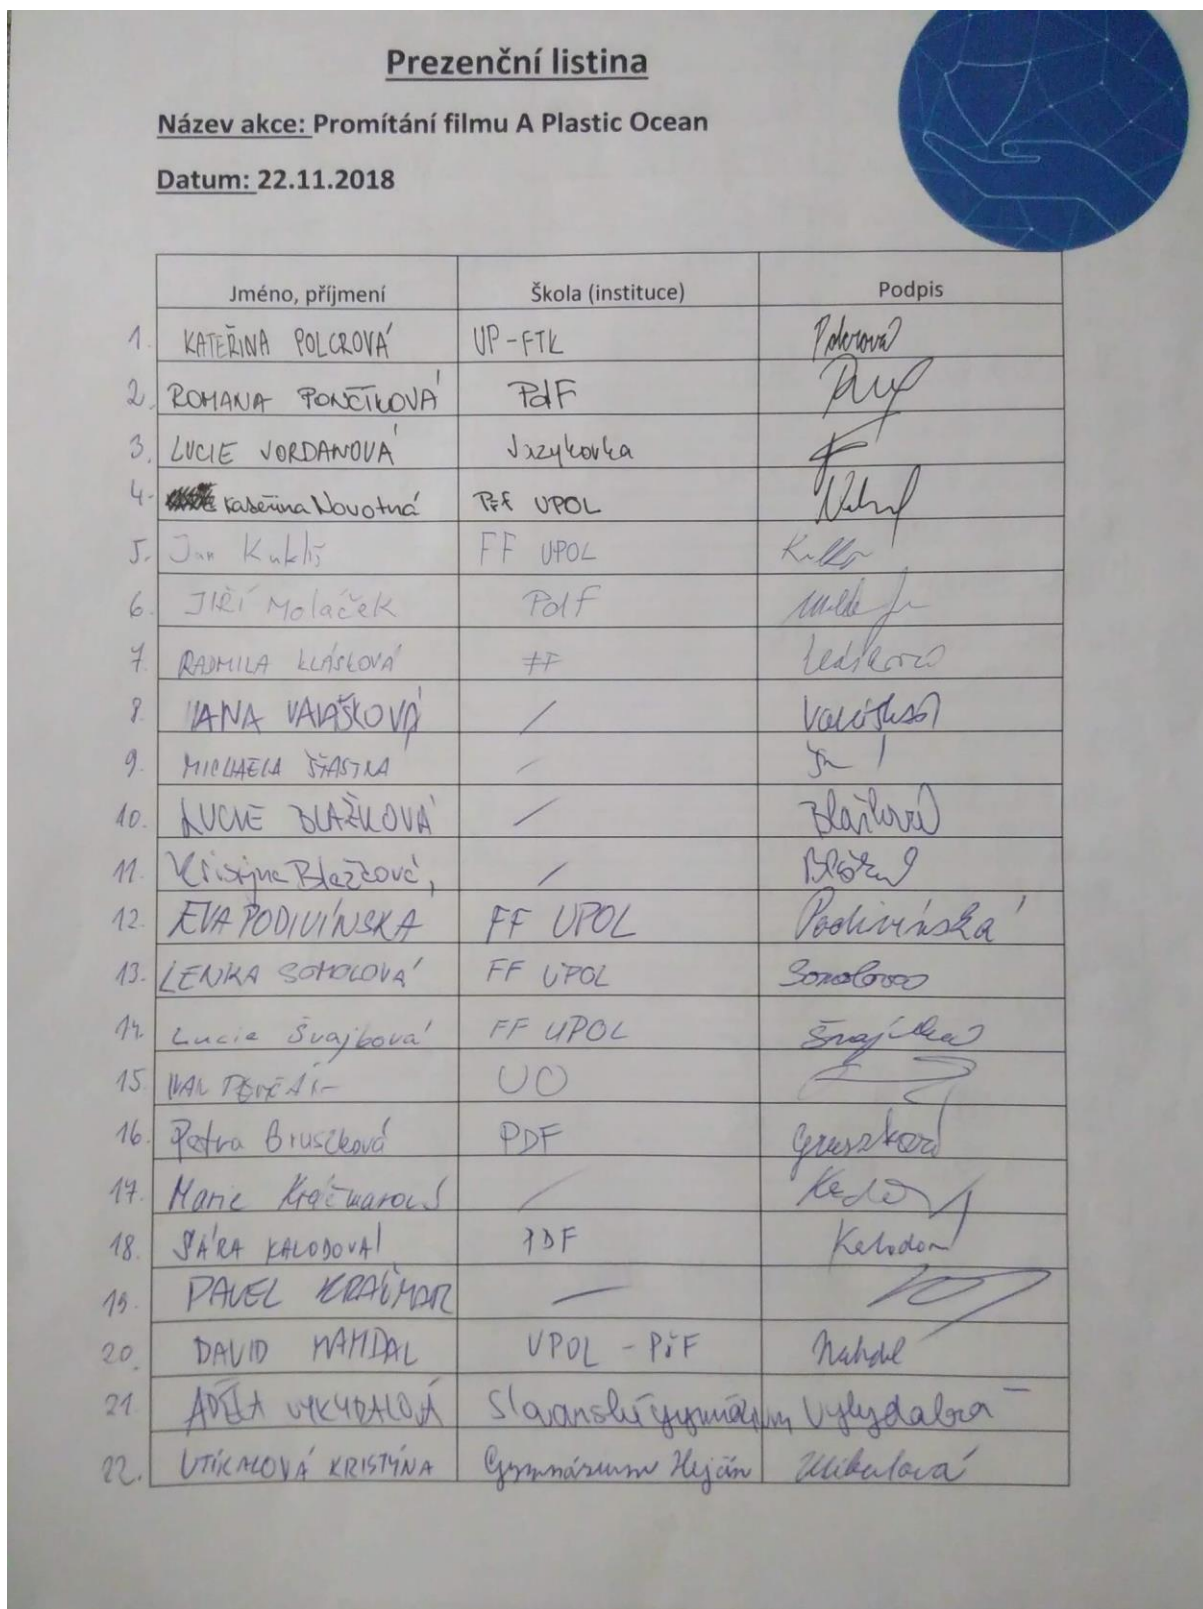 Prezenční listina
Název akce: Promítání filmu A Plastic Ocean
Datum: 22.11.2018
Jméno, příjmení Škola (instituce) Podpis
1. KATEŘINA POLCROVÁ UP-FTK Polcrová
2. ROMANA PONČÍKOVÁ PdF
3. LUCIE JORDANOVÁ Jazykovka
4. Kateřina Novotná PřF UPOL
5. Jan Kukliš FF UPOL
6. JIŘÍ Moláček PdF
7. RADMILA KLÁSKOVÁ FF
8. JANA VALÁŠKOVÁ /
9. MICHAELA ŠŤASTNÁ /
10. LUCIE BLAŽKOVÁ / Blažková
11. Kristýna Blažková, /
12. EVA PODIVÍNSKÁ FF UPOL Podivínská
13. LENKA FF UPOL
14. Lucie Švajbová FF UPOL
15. IVAN UO
16. Petra PDF
17. Marie Kráčmarová /
18. SÁRA KALODOVÁ PDF
19. PAVEL KRÁČMAR —
20. DAVID UPOL - PřF
21. ADÉLA VYKYDALOVÁ Slovanské gymnázium Vykydalová
22. UTÍKALOVÁ KRISTÝNA Gymnázium Hejčín Utíkalová